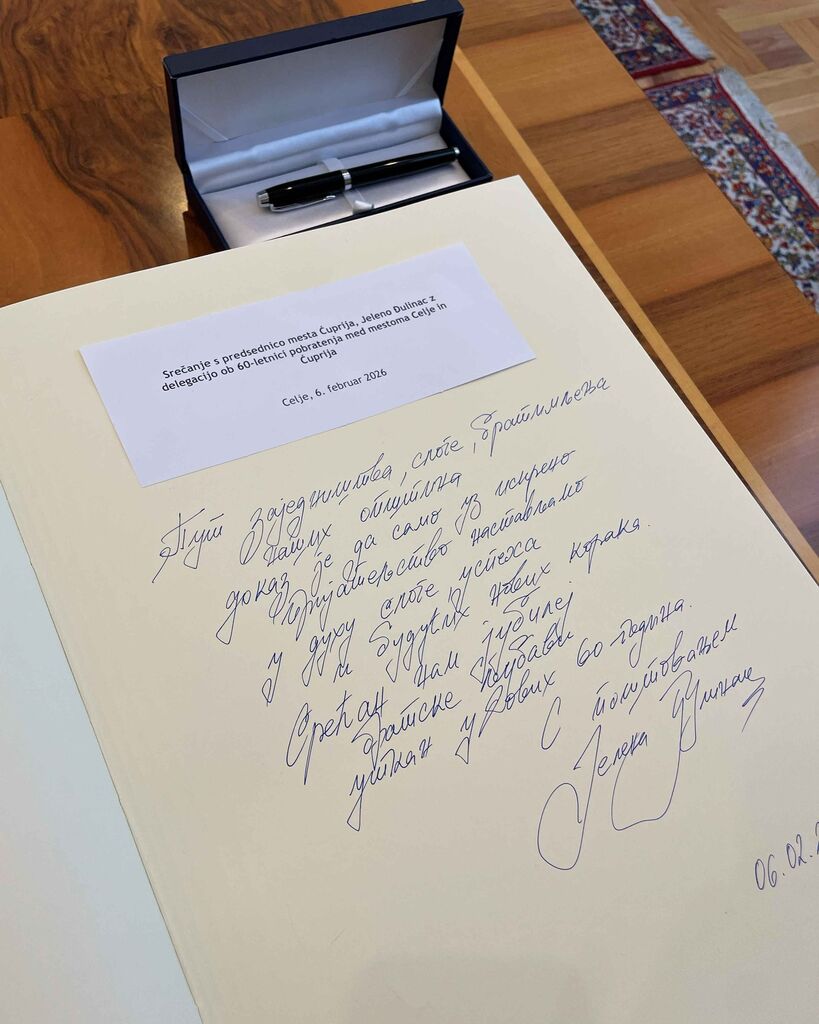 Srečanje s predsednico mesta Ćuprija, Jeleno Đulinac z
delegacijo ob 60-letnici pobratenja med mestoma Celje in
Ćuprija
Celje, 6. februar 2026
Пут заједништва, слоге, братимљења
наших општина
доказ је да само уз искрено
пријатељство настављамо
у духу слоге успеха
и будућих нових корака.
Срећан нам јубилеј
братске љубави
уткан у ових 60 година.
С поштовањем
Јелена Ђулинац
06.02.2